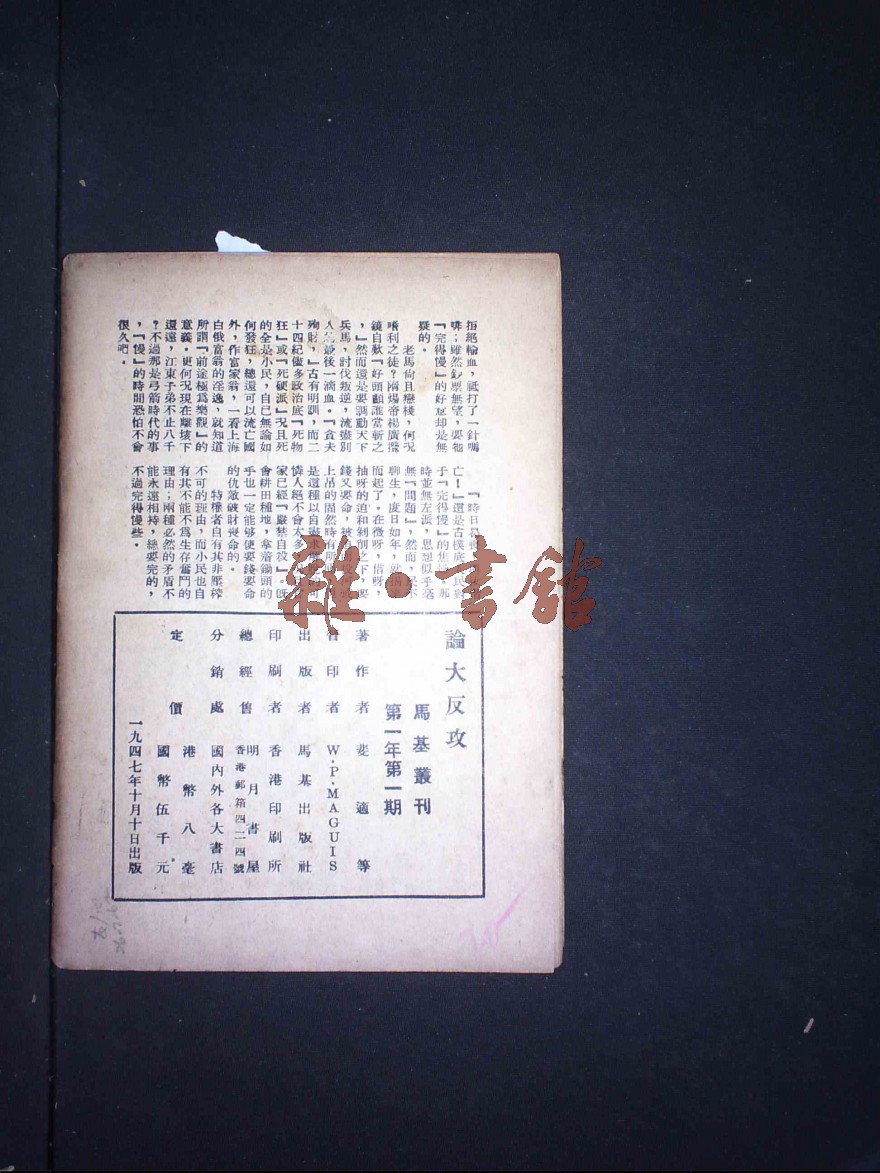 拒絕輸血，祗打了一針嗎
啡；雖然鈔票無望，要牠
『完得慢』的好意却是無
疑的。
老馬尙且戀棧，何况
嗜利之徒？隋煬帝楊廣攬
鏡自歎『好頭顱誰當斬之
，』然而還是要調動天下
兵馬，討伐叛逆，流盡別
人最後一滴血。『貪夫
殉財，』古有明訓，而二
十四紀儘多政治底『死物
狂』或『死硬派』况且死
的全是小民，自已無論如
何發狂，總還可以流亡國
外，作富家翁，一看上海
白俄富翁的淫逸，就知道
所謂『前途極爲樂觀』的
意義。更何况現在離垓下
還遠，江東子弟不止八千
？不過那是弓箭時代的事
，『慢』的時間恐怕不會
很久吧。
『時日曷喪
亡！』還是古樸底小民對
于『完得慢』的焦
時並無左派，思想似乎毫
無『問題』，然而，民不
聊生，度日如年，就
而起了。在徵呀，借呀，
抽呀的迫和剝削之下，要
錢又要命，被
上吊的固然時有所
是這種以自
憐人絕不會太多，
家已經『嚴禁自殺』。既
會耕田種地，拿着鋤頭的
手也一定能够使要錢要命
的仇敵破財喪命的。
特權者自有其非壓榨
不可的理由，而小民也自
有其不能不爲生存奮鬥的
理由；兩種必然的矛盾不
能永遠相持，總要完的，
不過完得慢些。
論大反攻
馬基叢刊
第一年第一期
著作者 斐適等
印者 W.P.MAGUIS
出版者 馬基出版社
印刷者 香港印刷所
總經售 明月書屋
香港郵箱四二四號
分銷處 國內外各大書店
定價 港幣八毫
國幣伍千元
一九四七年十月十日出版
雜·書館